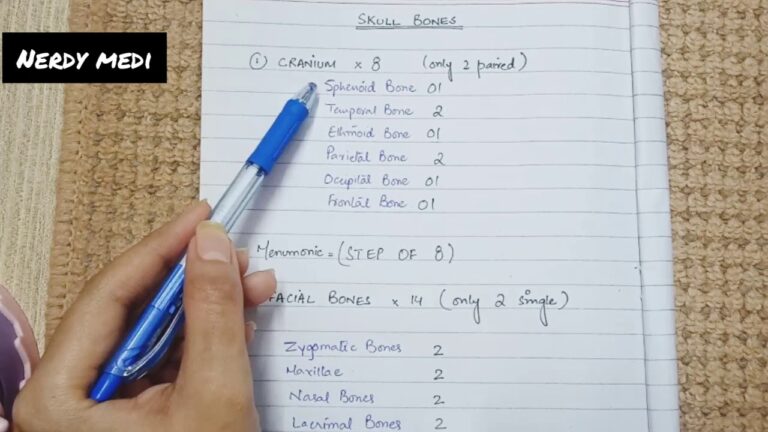 SKULL BONES
NERDY MEDI
① CRANIUM × 8 (only 2 paired)
Sphenoid Bone 01
Temporal Bone 2
Ethmoid Bone 01
Parietal Bone 2
Occipital Bone 01
Frontal Bone 01
Menumonic = (STEP OF 8)
FACIAL BONES × 14 (only 2 single)
Zygomatic Bones 2
Maxillae 2
Nasal Bones 2
Lacrimal Bones 2